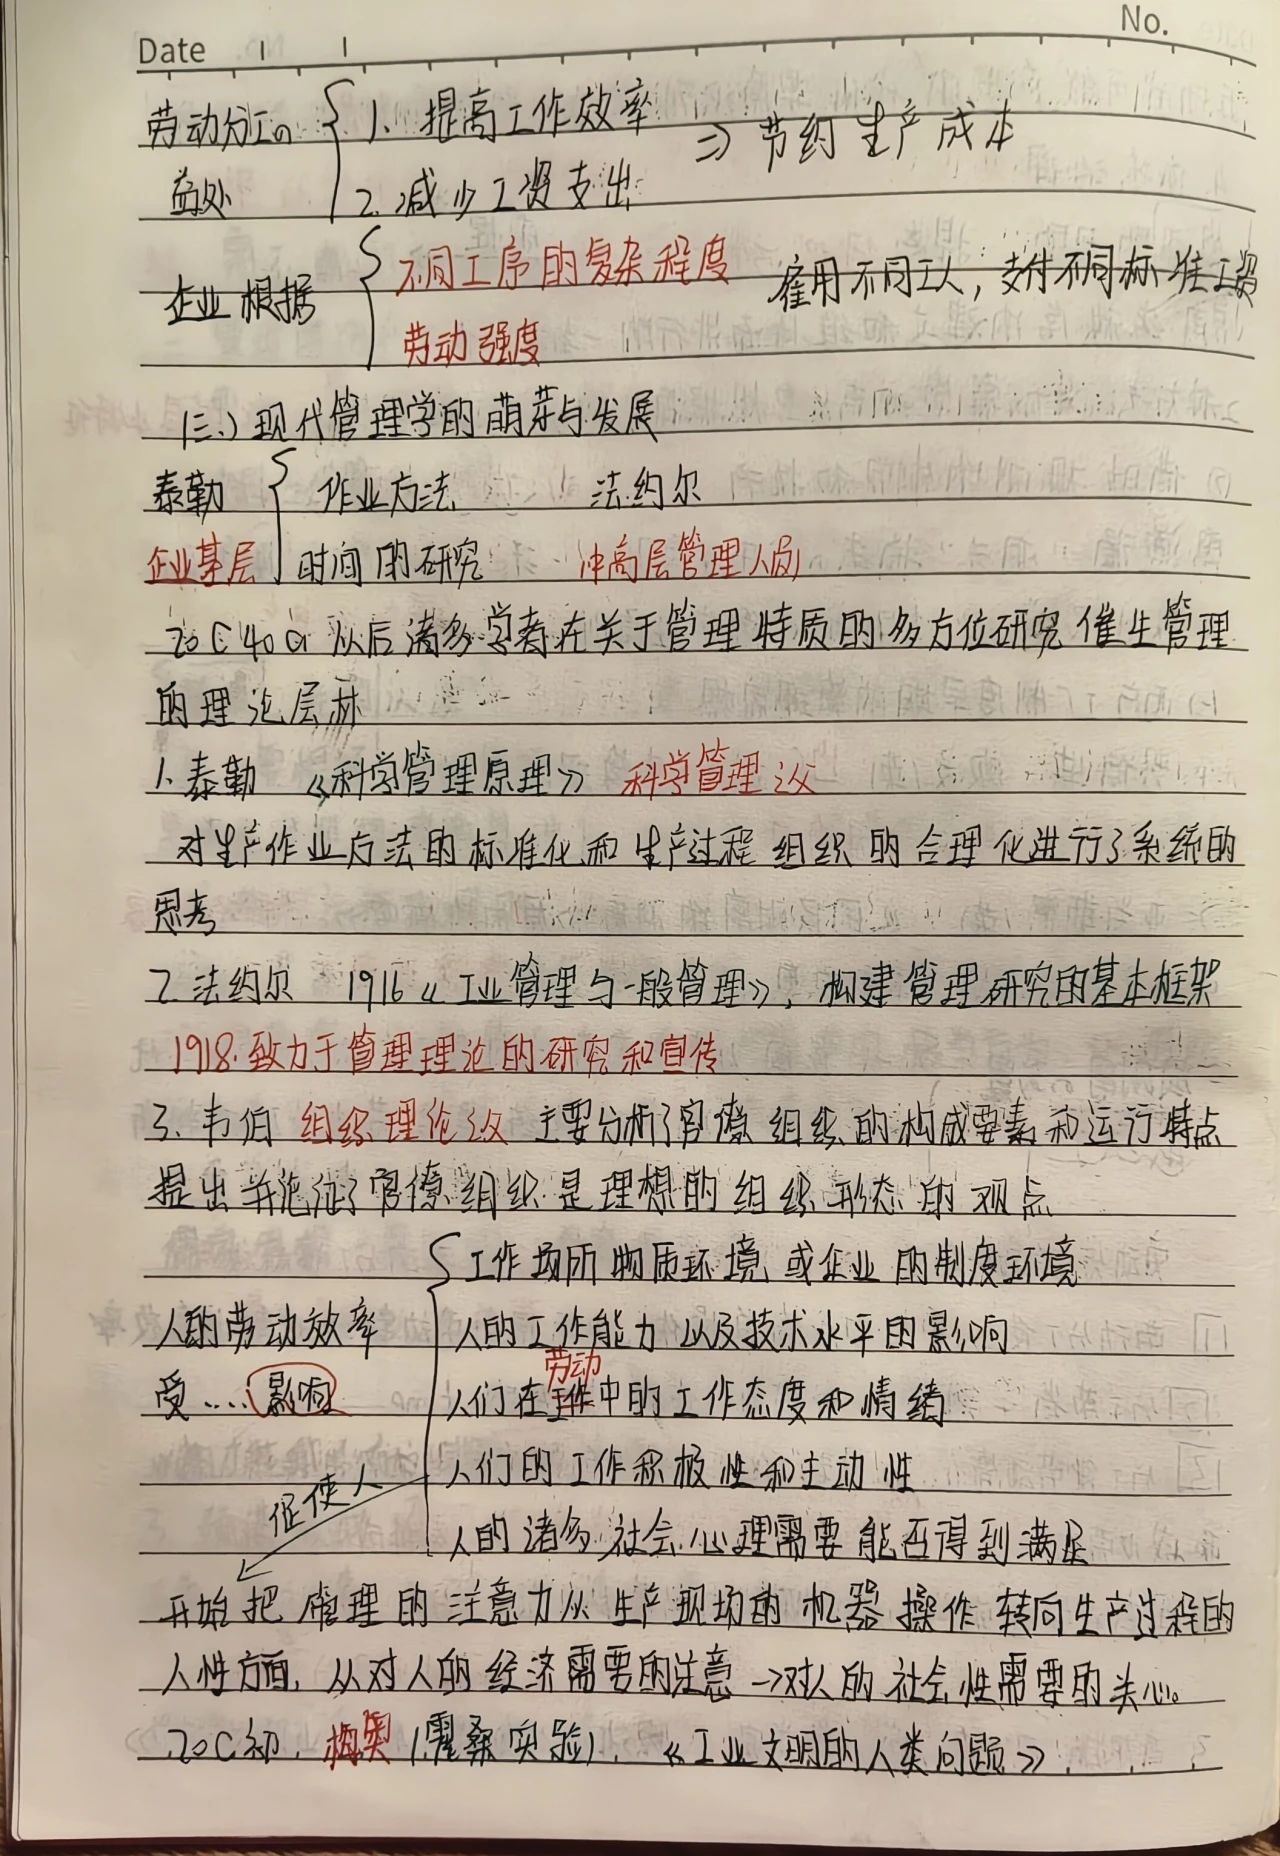 Date
No.
劳动分工的
益处
1. 提高工作效率
2. 减少工资支出
=> 节约生产成本
企业根据
不同工序的复杂程度
劳动强度
雇用不同工人，支付不同标准工资
(三、)现代管理学的萌芽与发展
泰勒
作业方法
法约尔
企业基层
时间的研究
高层管理人员
20C40a 以后诸多学者在关于管理特质的多方位研究催生管理
的理论丛林
1. 泰勒 《科学管理原理》 科学管理之父
对生产作业方法的标准化和生产过程组织的合理化进行了系统的
思考
2. 法约尔 1916《工业管理与一般管理》，构建管理研究的基本框架
1918. 致力于管理理论的研究和宣传
3. 韦伯 组织理论之父 主要分析了官僚组织的构成要素和运行特点
提出并论证了官僚组织是理想的组织形态的观点
工作场所物质环境或企业的制度环境
人的劳动效率
人的工作能力以及技术水平的影响
劳动
受....影响
人们在工作中的工作态度和情绪
人们的工作积极性和主动性
促使人
人的诸多社会心理需要能否得到满足
开始把管理的注意力从生产现场的机器操作转向生产过程的
人性方面，从对人的经济需要的注意→对人的社会性需要的关心。
20C初. 梅奥(霍桑实验). 《工业文明的人类问题》.